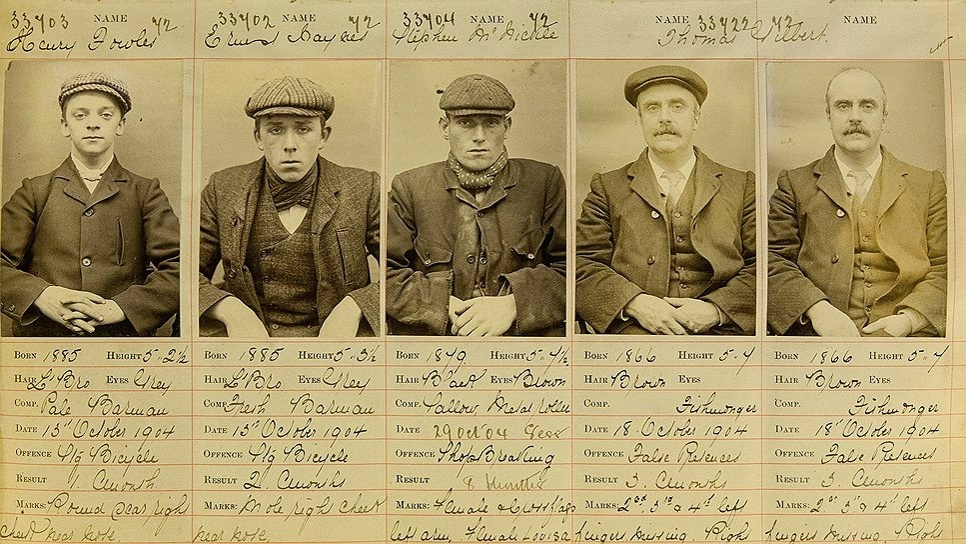 33703 NAME 72 33702 NAME 72 33704 NAME 72 NAME 33722 72 NAME
Henry Fowles Ernest Haynes Stephen McNickle Thomas Gilbert
BORN 1885 HEIGHT 5-2½ BORN 1885 HEIGHT 5-3½ BORN 1879 HEIGHT 5-4½ BORN 1866 HEIGHT 5-4 BORN 1866 HEIGHT 5-4
HAIR L'Bro EYES Grey HAIR L'Bro EYES Grey HAIR Black EYES Brown HAIR Brown EYES HAIR Brown EYES
COMP. Pale Barman COMP. Fresh Barman COMP. Sallow, Metal roller COMP. Fishmonger COMP. Fishmonger
DATE 13" October 1904 DATE 13" October 1904 DATE 29 Oct 04 DATE 18 October 1904 DATE 18' October 1904
OFFENCE Stg Bicycle OFFENCE Stg Bicycle OFFENCE Shop Breaking OFFENCE False Pretences OFFENCE False Pretences
RESULT 1. Month RESULT 2. Months RESULT 8 Months RESULT 3. Months RESULT 3. Months
MARKS: Round scar right MARKS: Mole right cheek MARKS: Female & Cross flags MARKS: 2nd 3rd & 4th left MARKS: 2" 3" & 4th left
cheek near nose. near nose. left arm, Female Louisa fingers missing. Right fingers missing. Right